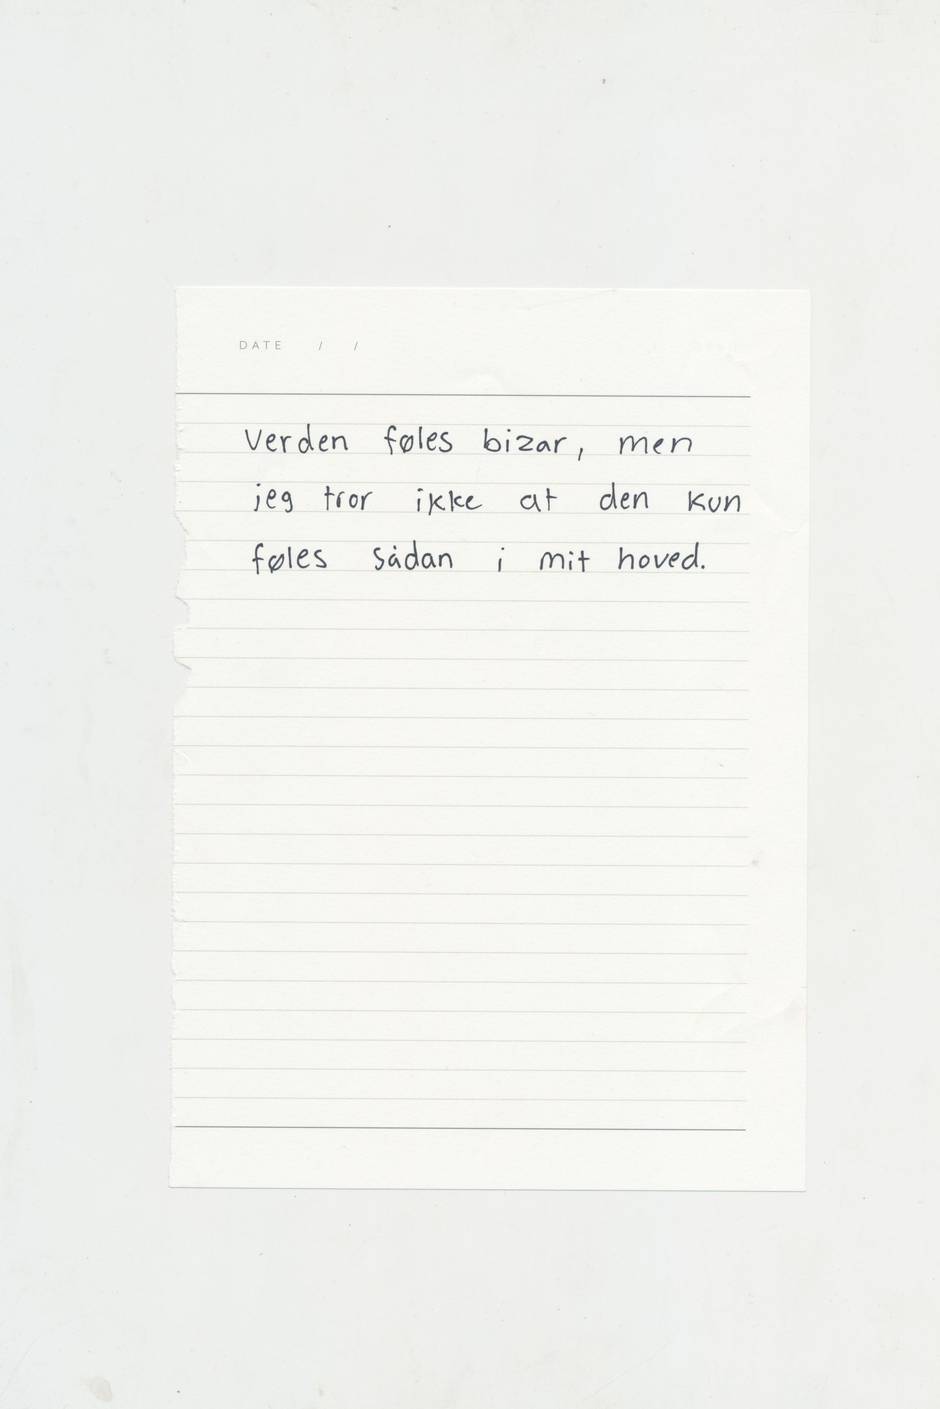 DATE / /
Verden føles bizar, men
jeg tror ikke at den kun
føles sådan i mit hoved.